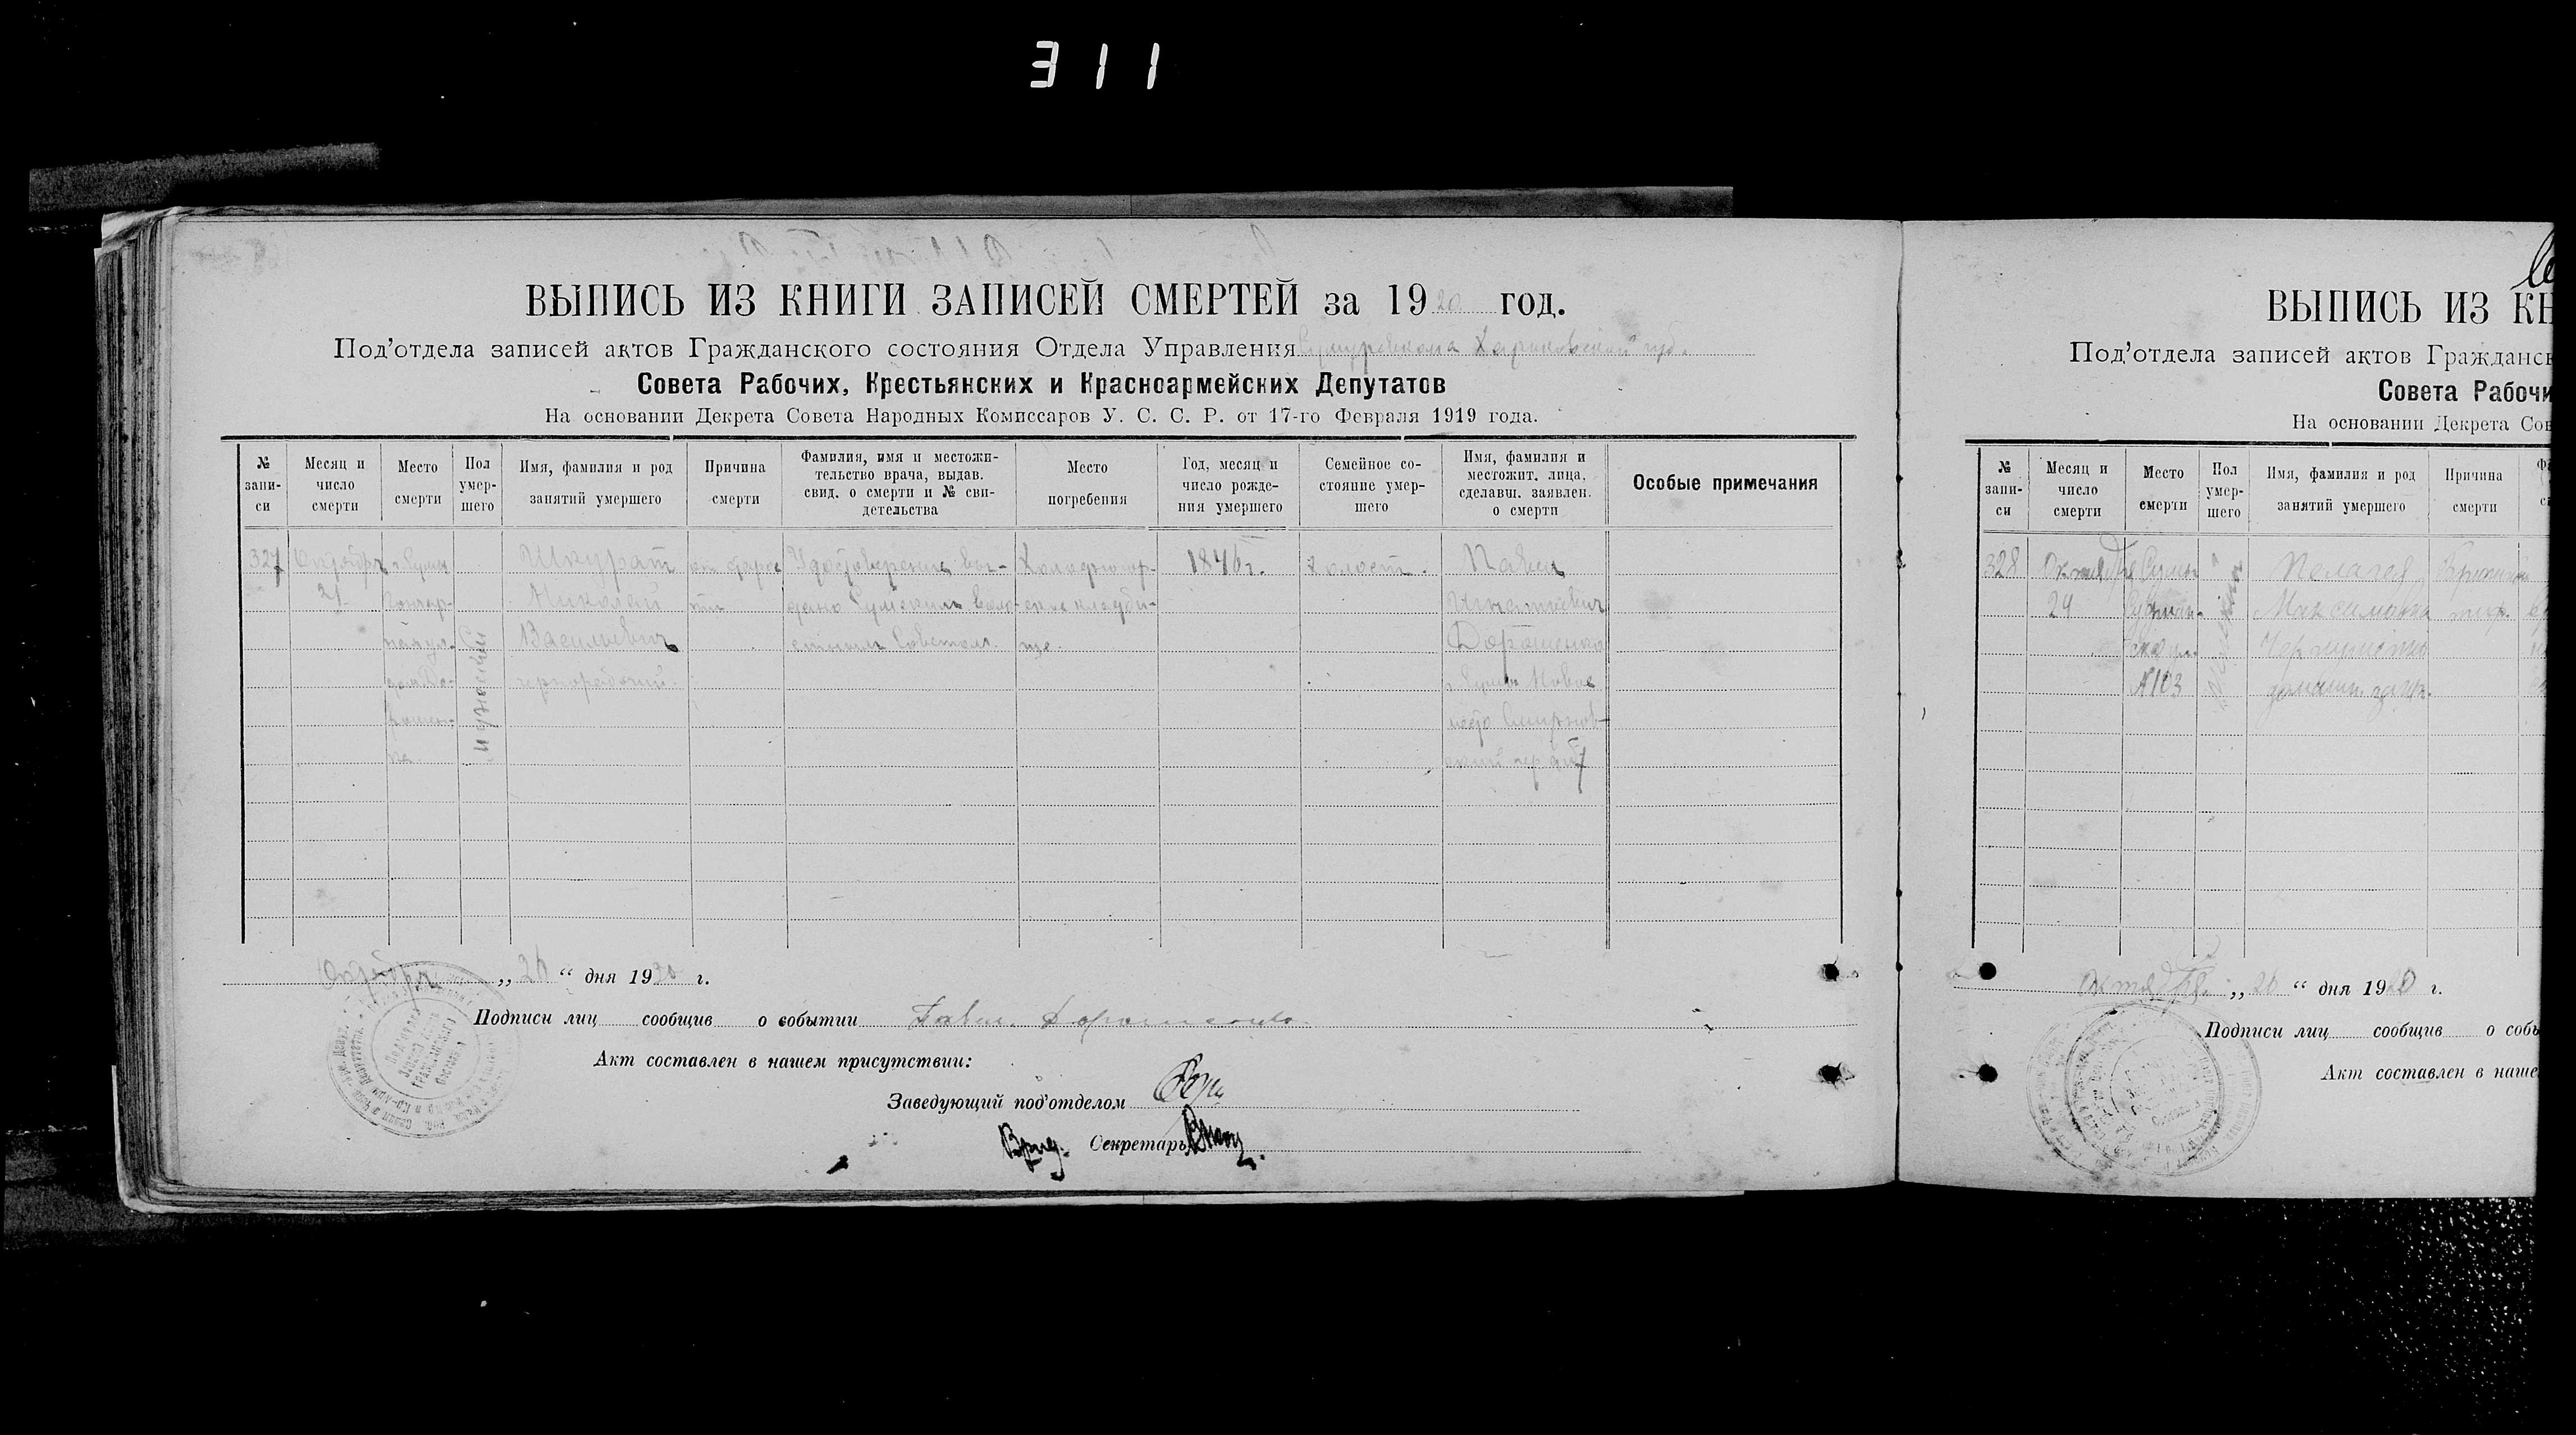 311
ВЫПИСЬ ИЗ КНИГИ ЗАПИСЕЙ СМЕРТЕЙ за 1920 год.
Под'отдела записей актов Гражданского состояния Отдела Управления Харьковской губ.
Совета Рабочих, Крестьянских и Красноармейских Депутатов
На основании Декрета Совета Народных Комиссаров У. С. С. Р. от 17-го Февраля 1919 года.
№ запи-
си
Месяц и
число
смерти
Место
смерти
Пол
умер-
шего
Имя, фамилия и род
занятий умершего
Причина
смерти
Фамилия, имя и местожи-
тельство врача, выдав.
свид. о смерти и № сви-
детельства
Место
погребения
Год, месяц и
число рожде-
ния умершего
Семейное со-
стояние умер-
шего
Имя, фамилия и
местожит. лица,
сделавш. заявлен.
о смерти
Особые примечания
327
Октябрь
21
г. Сумы
Мужской
Шкурат
Николай
Васильевич
чернорабочий.
от старос
ти
Удостоверение вы-
дано Сумским воло-
стным Советом.
кладби-
ще.
1846 г.
Холост.
Павел
Игнатиевич
Дорошенко
г. Сумы Новое
место
Октябрь „ 26 “ дня 1920 г.
Подписи лиц сообщив о событии Павел Дорошенко
Акт составлен в нашем присутствии:
Заведующий под'отделом
Врид. Секретарь
ВЫПИСЬ ИЗ КН
Под'отдела записей актов Гражданск
Совета Рабочи
На основании Декрета Сов
№ запи-
си
Месяц и
число
смерти
Место
смерти
Пол
умер-
шего
Имя, фамилия и род
занятий умершего
Причина
смерти
328
Октября
24
г. Сумы
ская ул.
№103
Женский
Пелагея
Максимовна
домашн. хоз.
Брюшной
тиф.
Октября „ 26 “ дня 1920 г.
Подписи лиц сообщив о собы
Акт составлен в наше